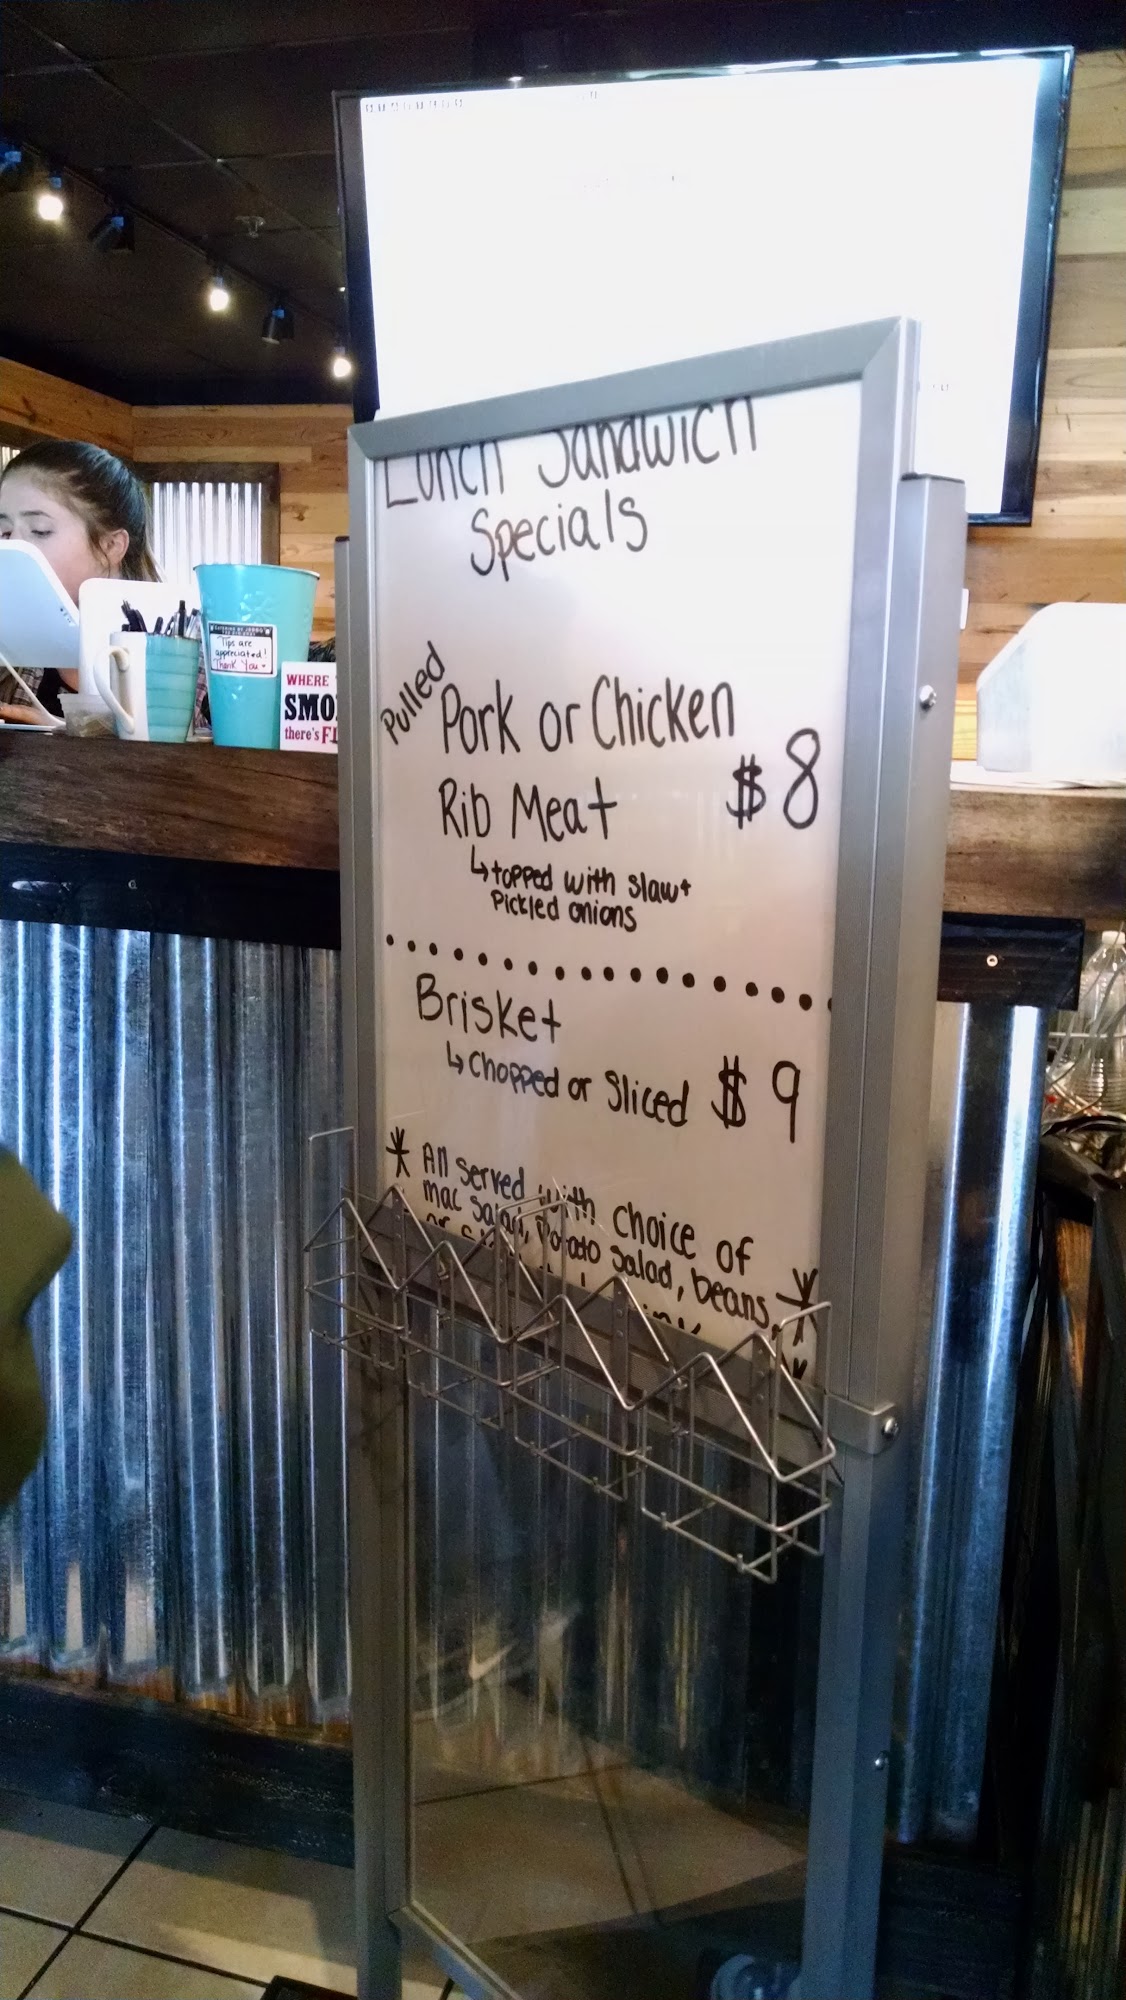 Lunch Sandwich
Specials
Pulled
Pork or Chicken
Rib Meat $8
↳ topped with slaw +
Pickled onions
Brisket
↳ Chopped or Sliced $9
* All served with choice of
mac salad, Potato salad, beans, *
or
Tips are
appreciated!
Thank You
WHERE
SMO
there's FI